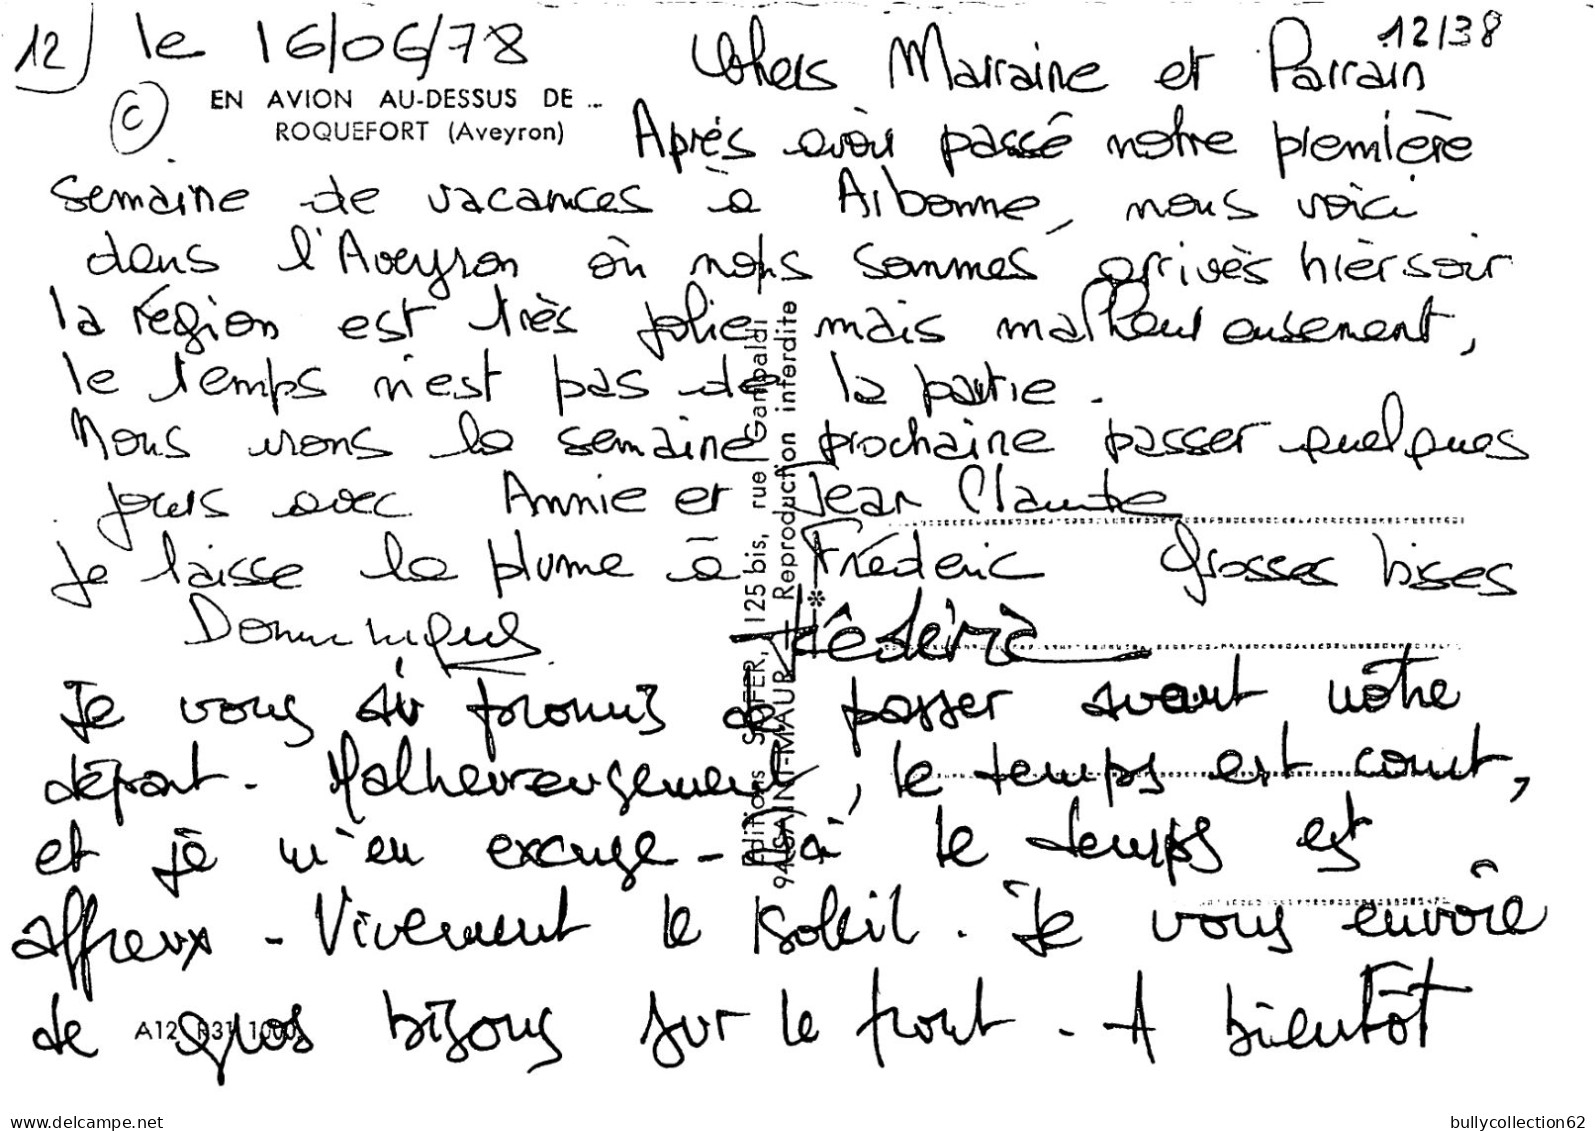 12
le 16/06/78
12/38
C
EN AVION AU-DESSUS DE ...
ROQUEFORT (Aveyron)
Chers Marraine et Parrain
Après avoir passé notre première
semaine de vacances à Arbonne, nous voici
dans l'Aveyron où nous sommes arrivés hier soir
la région est très jolie mais malheureusement,
le temps n'est pas de la partie.
Nous irons la semaine prochaine passer quelques
jours avec Annie et Jean Claude
je laisse la plume à Frédéric Grosses bises
Dominique
Frédéric
Je vous ai promis de passer avant notre
départ - Malheureusement, le temps est court,
et je m'en excuse - Ici le temps est
affreux - Vivement le soleil. Je vous envoie
de gros bisous sur le front - A bientôt
Editions S 125 bis, rue Garibaldi
94-SAINT-MAUR Reproduction interdite
A12 1000
delcampe.net
bullycollection62